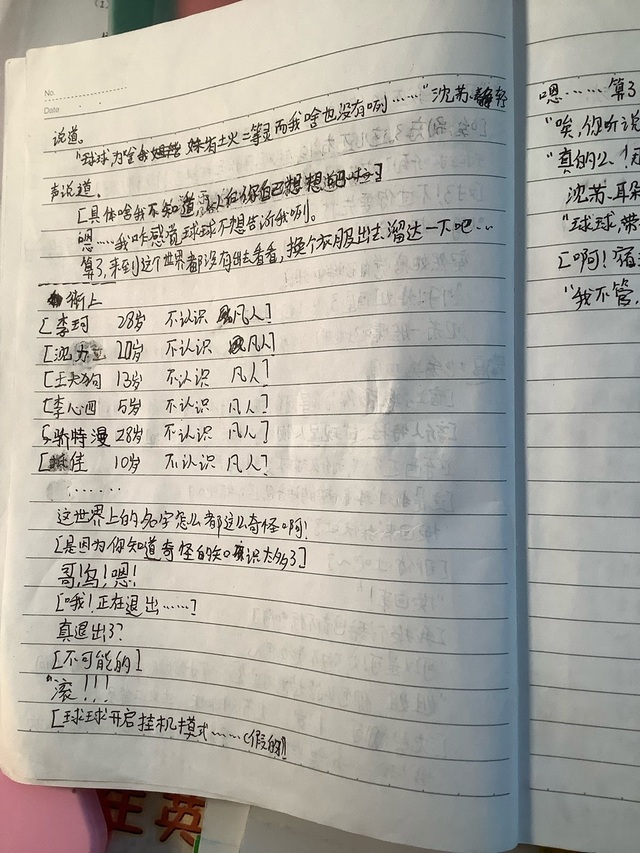 No.
Date
说道。
"球球,为啥 有土火二等灵而我啥也没有咧……"沈苏 轻
声说道。
[具体啥我不知道, 你自己想想吧]
嗯……我咋感觉球球不想告诉我咧。
算了,来到这个世界都没有出去看看,换个衣服出去溜达一下吧…
街上
[李珂 28岁 不认识 凡人]
[沈 20岁 不认识 凡人]
[王夫狗 13岁 不认识 凡人]
[李心四 5岁 不认识 凡人]
[乔特漫 28岁 不认识 凡人]
[ 佳 10岁 不认识 凡人]
……
这世界上的名字怎么都这么奇怪啊!
[是因为你知道奇怪的知识太多了]
哥!乌!嗯!
[哦!正在退出……]
真退出了?
[不可能的]
"滚!!!
[球球开启挂机模式……(假的)]
嗯……算了
"唉,你听说
"真的么!
沈苏 耳朵
"球球,带
[啊!宿
"我不管
在英